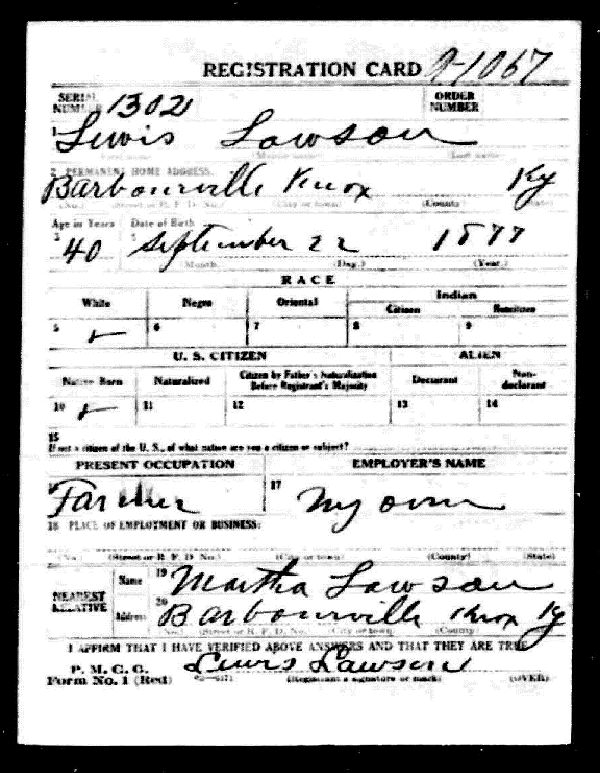 REGISTRATION CARD 9-1067
SERIAL NUMBER 1302 ORDER NUMBER
1 Lewis Lawson
2 PERMANENT HOME ADDRESS:
Barbourville Knox Ky
(No.) (Street or R. F. D. No.) (City or town) (County) (State)
Age in Years Date of Birth
3 40 4 September 22 1877
(Month.) (Day.) (Year.)
RACE
White Negro Oriental Indian
Citizen Noncitizen
5 ✓ 6 7 8 9
U. S. CITIZEN ALIEN
Native Born Naturalized Citizen by Father's Naturalization Before Registrant's Majority Declarant Non-declarant
10 ✓ 11 12 13 14
15
If not a citizen of the U. S., of what nation are you a citizen or subject?
PRESENT OCCUPATION EMPLOYER'S NAME
Farmer 17 My own
18 PLACE OF EMPLOYMENT OR BUSINESS:
(No.) (Street or R. F. D. No.) (City or town) (County) (State)
NEAREST RELATIVE Name 19 Martha Lawson
Address 20 Barbourville Knox Ky
(No.) (Street or R. F. D. No.) (City or town) (County)
I AFFIRM THAT I HAVE VERIFIED ABOVE ANSWERS AND THAT THEY ARE TRUE
P. M. G. O.
Form No. 1 (Red) Lewis Lawson
(Registrant's signature or mark) (OVER)